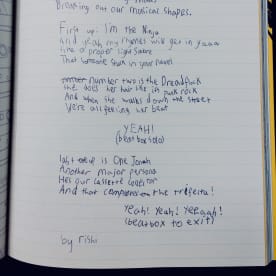 our musical shapes.
First up I'm the Ninja
And yeah my rhymes will get in yaaa
like a proper light sabre
That someone stuck in your navel
number two is the Dreadfuck
she does her hair like its punk rock
And when she walks down the street
We're all feeling her beat
YEAH!
(beat box solo)
is One Jonah
Another major persona
He's our cassette
And that completes the trifecta!
Yeah! Yeah! Yeeaah!
(beatbox to exit)
by rishi